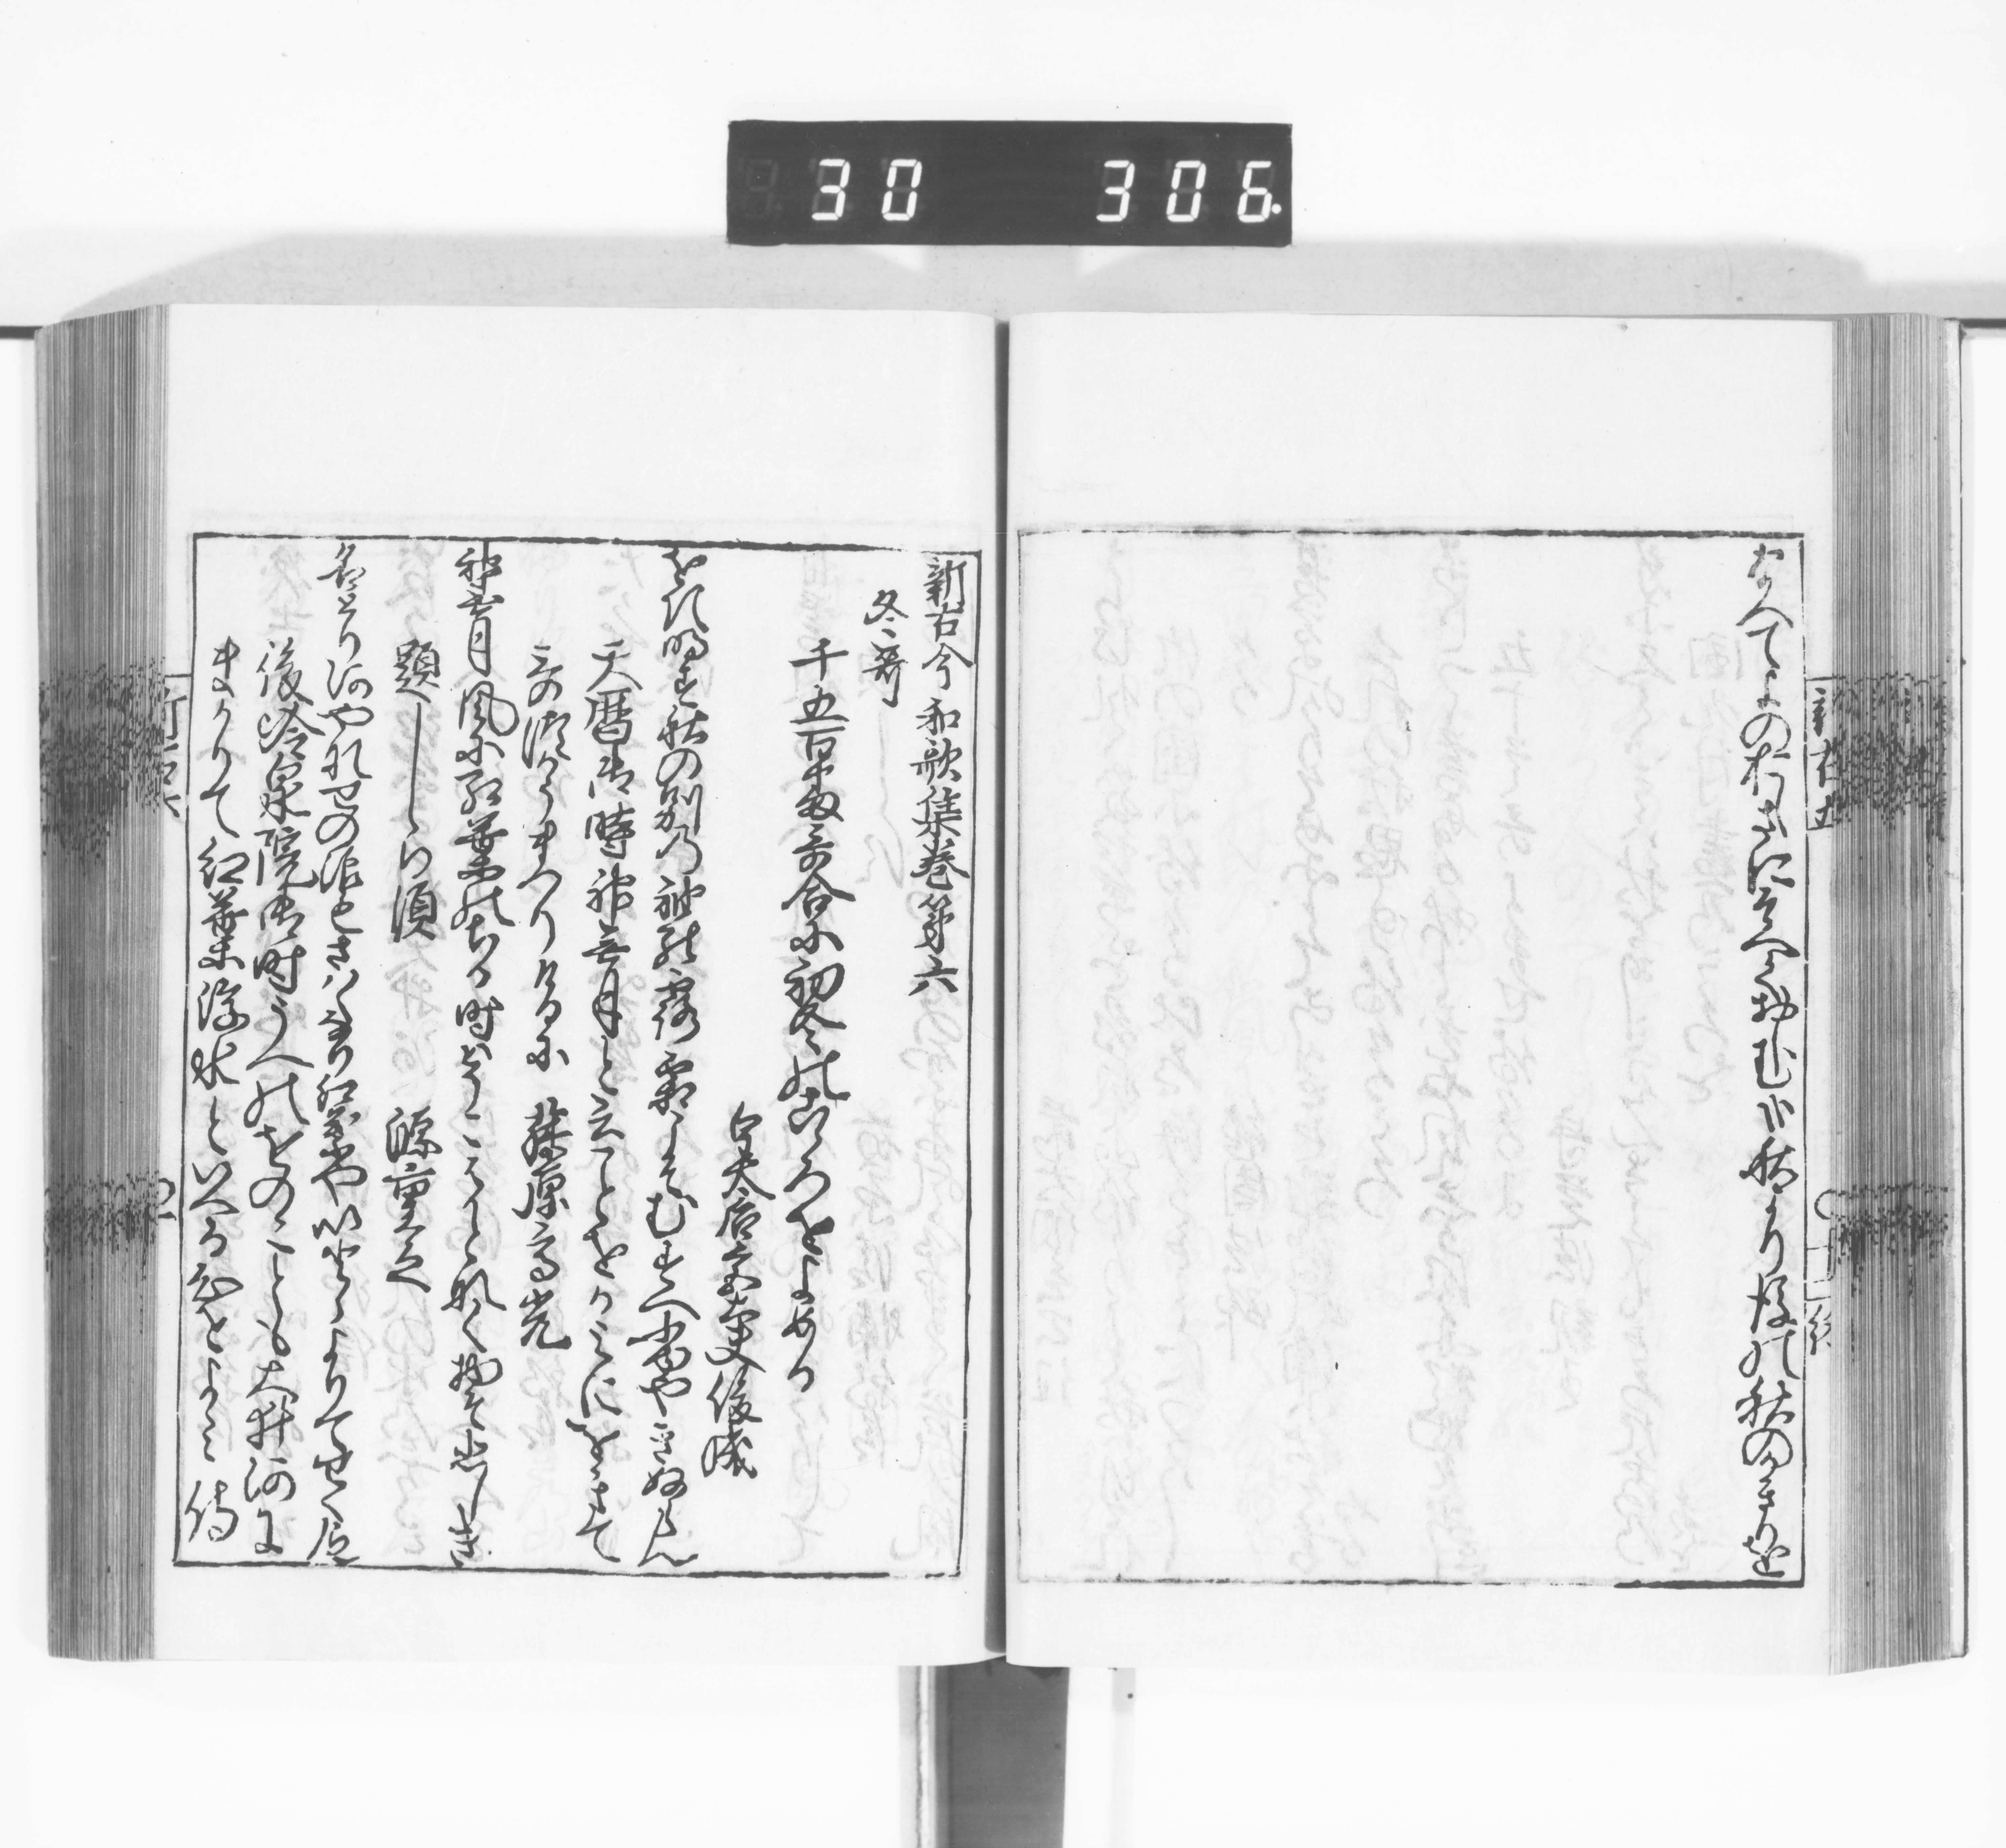 30 306.
なへてよのおしさにそへておしむ哉秋より後の秋のかきりを
新古今和歌集巻第六
冬哥
千五百番哥合に初冬のこゝろをよめり
皇太后宮大夫俊成
をきあかす秋の別の袖の露霜こそむすへ冬やきぬらん
天暦御時神無月と云ことをかみにをきて
哥つかうまつりけるに 藤原高光
神無月風に紅葉のちる時はそこはかとなく物そかなしき
題しらす 源重之
名とり河やなせの浪もさはくなり紅葉やいとゝよりてせくらん
後冷泉院御時うへのをのことも大井河に
まかりて紅葉浮水といへる心をよみ侍